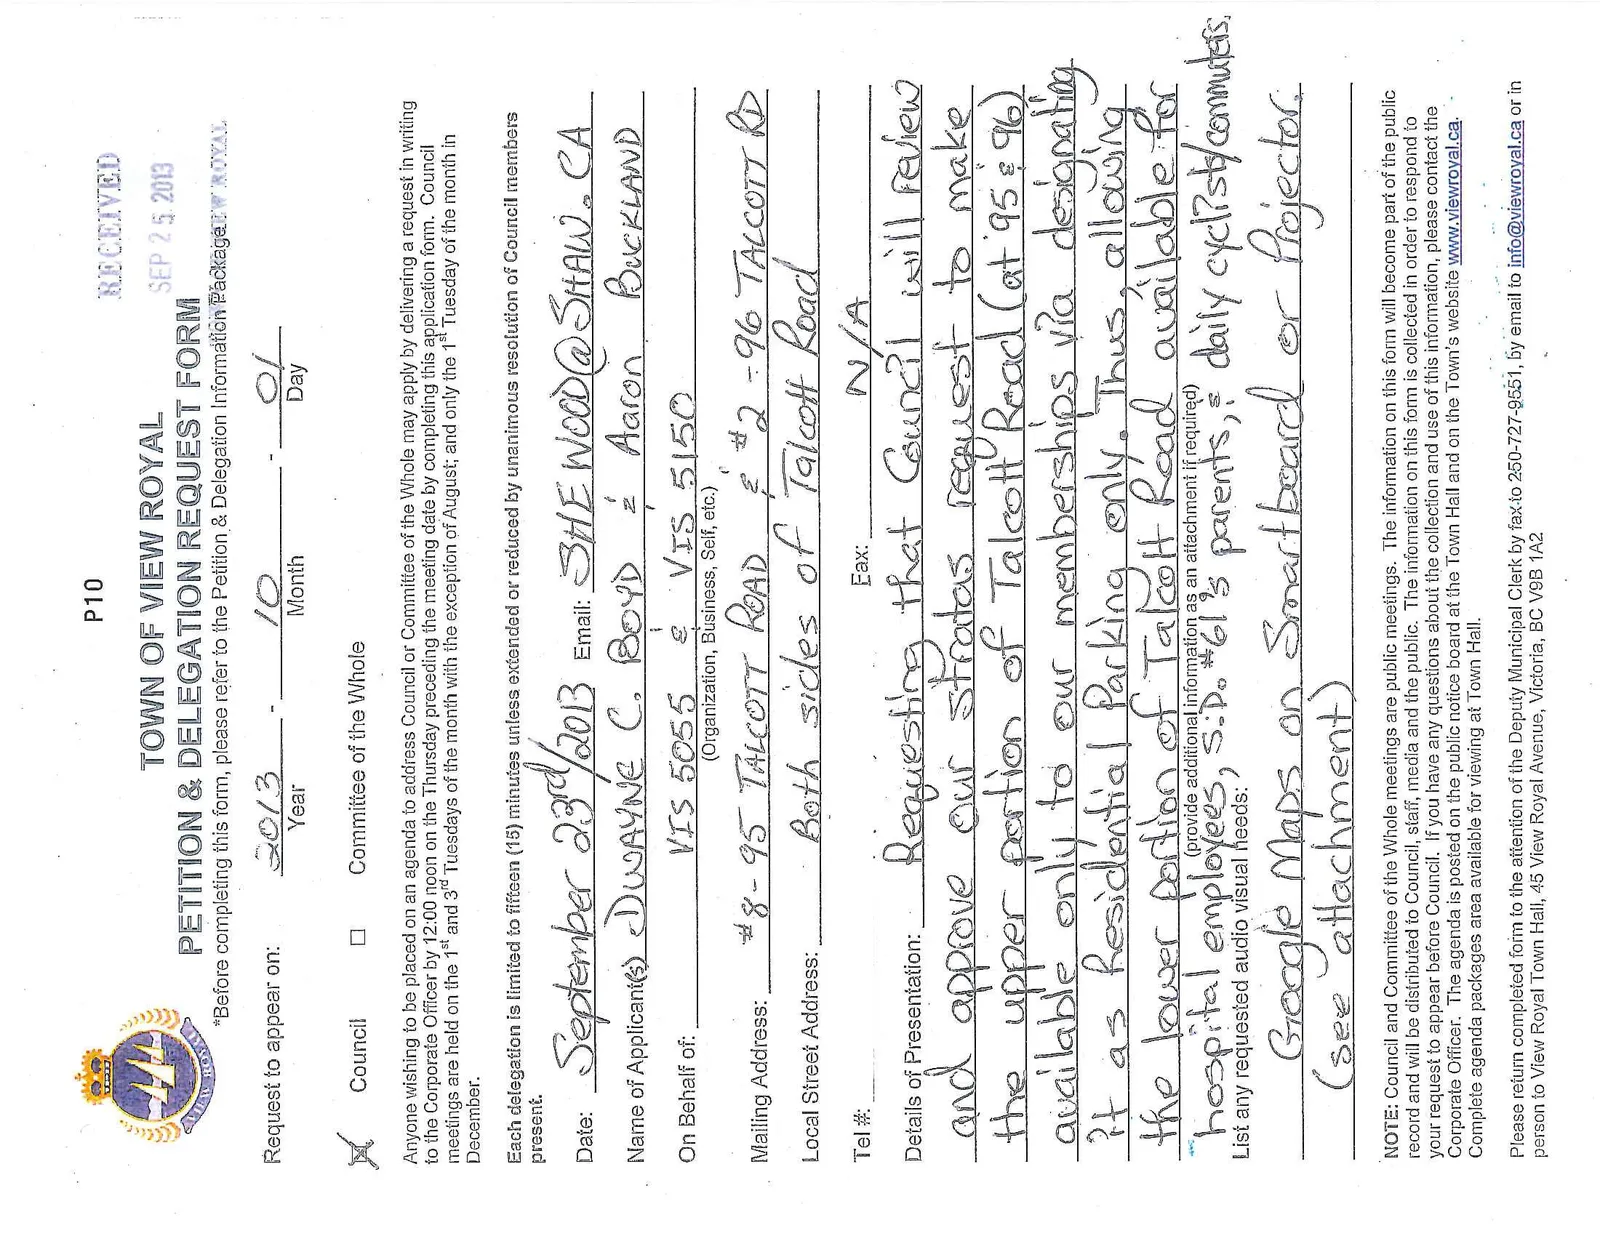 P10
RECEIVED
SEP 25 2013
VIEW ROYAL
TOWN OF VIEW ROYAL
PETITION & DELEGATION REQUEST FORM
*Before completing this form, please refer to the Petition & Delegation Information Package.
Request to appear on: 2013 - 10 - 01
Year Month Day
☒ Council ☐ Committee of the Whole
Anyone wishing to be placed on an agenda to address Council or Committee of the Whole may apply by delivering a request in writing
to the Corporate Officer by 12:00 noon on the Thursday preceding the meeting date by completing this application form. Council
meetings are held on the 1st and 3rd Tuesdays of the month with the exception of August; and only the 1st Tuesday of the month in
December.
Each delegation is limited to fifteen (15) minutes unless extended or reduced by unanimous resolution of Council members
present.
Date: September 23rd/2013 Email: SHEWOOD@SHAW.CA
Name of Applicant(s) DWAYNE C. BOYD & Aaron BUCKLAND
On Behalf of: VIS 5055 & VIS 5150
(Organization, Business, Self, etc.)
Mailing Address: #8-95 TALCOTT ROAD & #2-96 TALCOTT RD
Local Street Address: Both sides of Talcott Road
Tel #: Fax: N/A
Details of Presentation: Requesting that Council will review
and approve our stratas request to make
the upper portion of Talcott Road (at 95 & 96)
available only to our memberships via designating
it as Residential Parking only. Thus, allowing
the lower portion of Talcott Road available for
(provide additional information as an attachment if required)
hospital employees, S.D. #61's parents, & daily cyclists/commuters.
List any requested audio visual needs:
Google Maps on Smartboard or Projector.
(see attachment)
NOTE: Council and Committee of the Whole meetings are public meetings. The information on this form will become part of the public
record and will be distributed to Council, staff, media and the public. The information on this form is collected in order to respond to
your request to appear before Council. If you have any questions about the collection and use of this information, please contact the
Corporate Officer. The agenda is posted on the public notice board at the Town Hall and on the Town's website www.viewroyal.ca.
Complete agenda packages area available for viewing at Town Hall.
Please return completed form to the attention of the Deputy Municipal Clerk by fax to 250-727-9551, by email to info@viewroyal.ca or in
person to View Royal Town Hall, 45 View Royal Avenue, Victoria, BC V9B 1A2